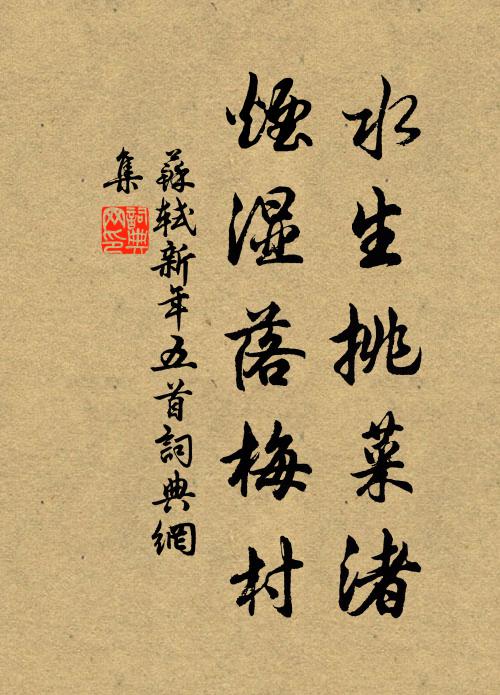 水生挑菜渚
煙湿落梅村
蘇軾新年五首詞典網
集
詞典
网印